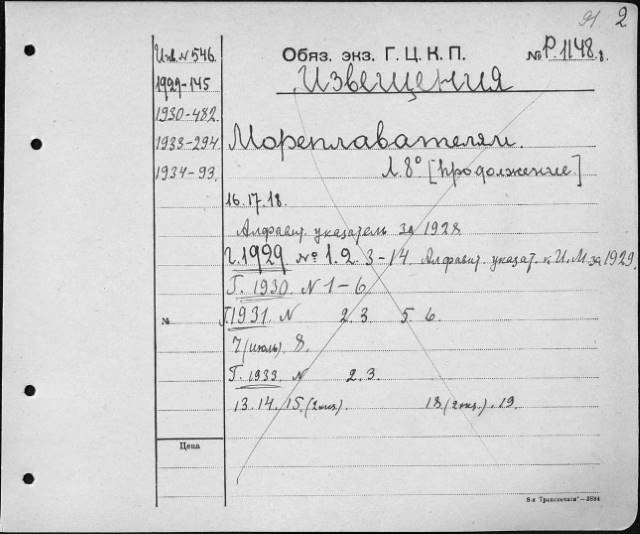 91. 2
Инв. № 546.
1927-145
1930-482.
1933-294
1934-93.
Обяз. экз. Г. Ц. К. П. № Р. 1148 г.
Извещения
Мореплавателям.
Л. 8° [Продолжение]
16. 17. 18.
Алфавит. указатель за 1928
Г. 1929 № 1. 2. 3-14 Алфавит. указат. к И.М. за 1929
Г. 1930. N 1-6
№ Г. 1931 N 2. 3. 5. 6.
7 (июль). 8.
Г. 1933. N 2. 3.
13. 14. 15. (2 экз.). 18 (2 экз.). 19.
Цена